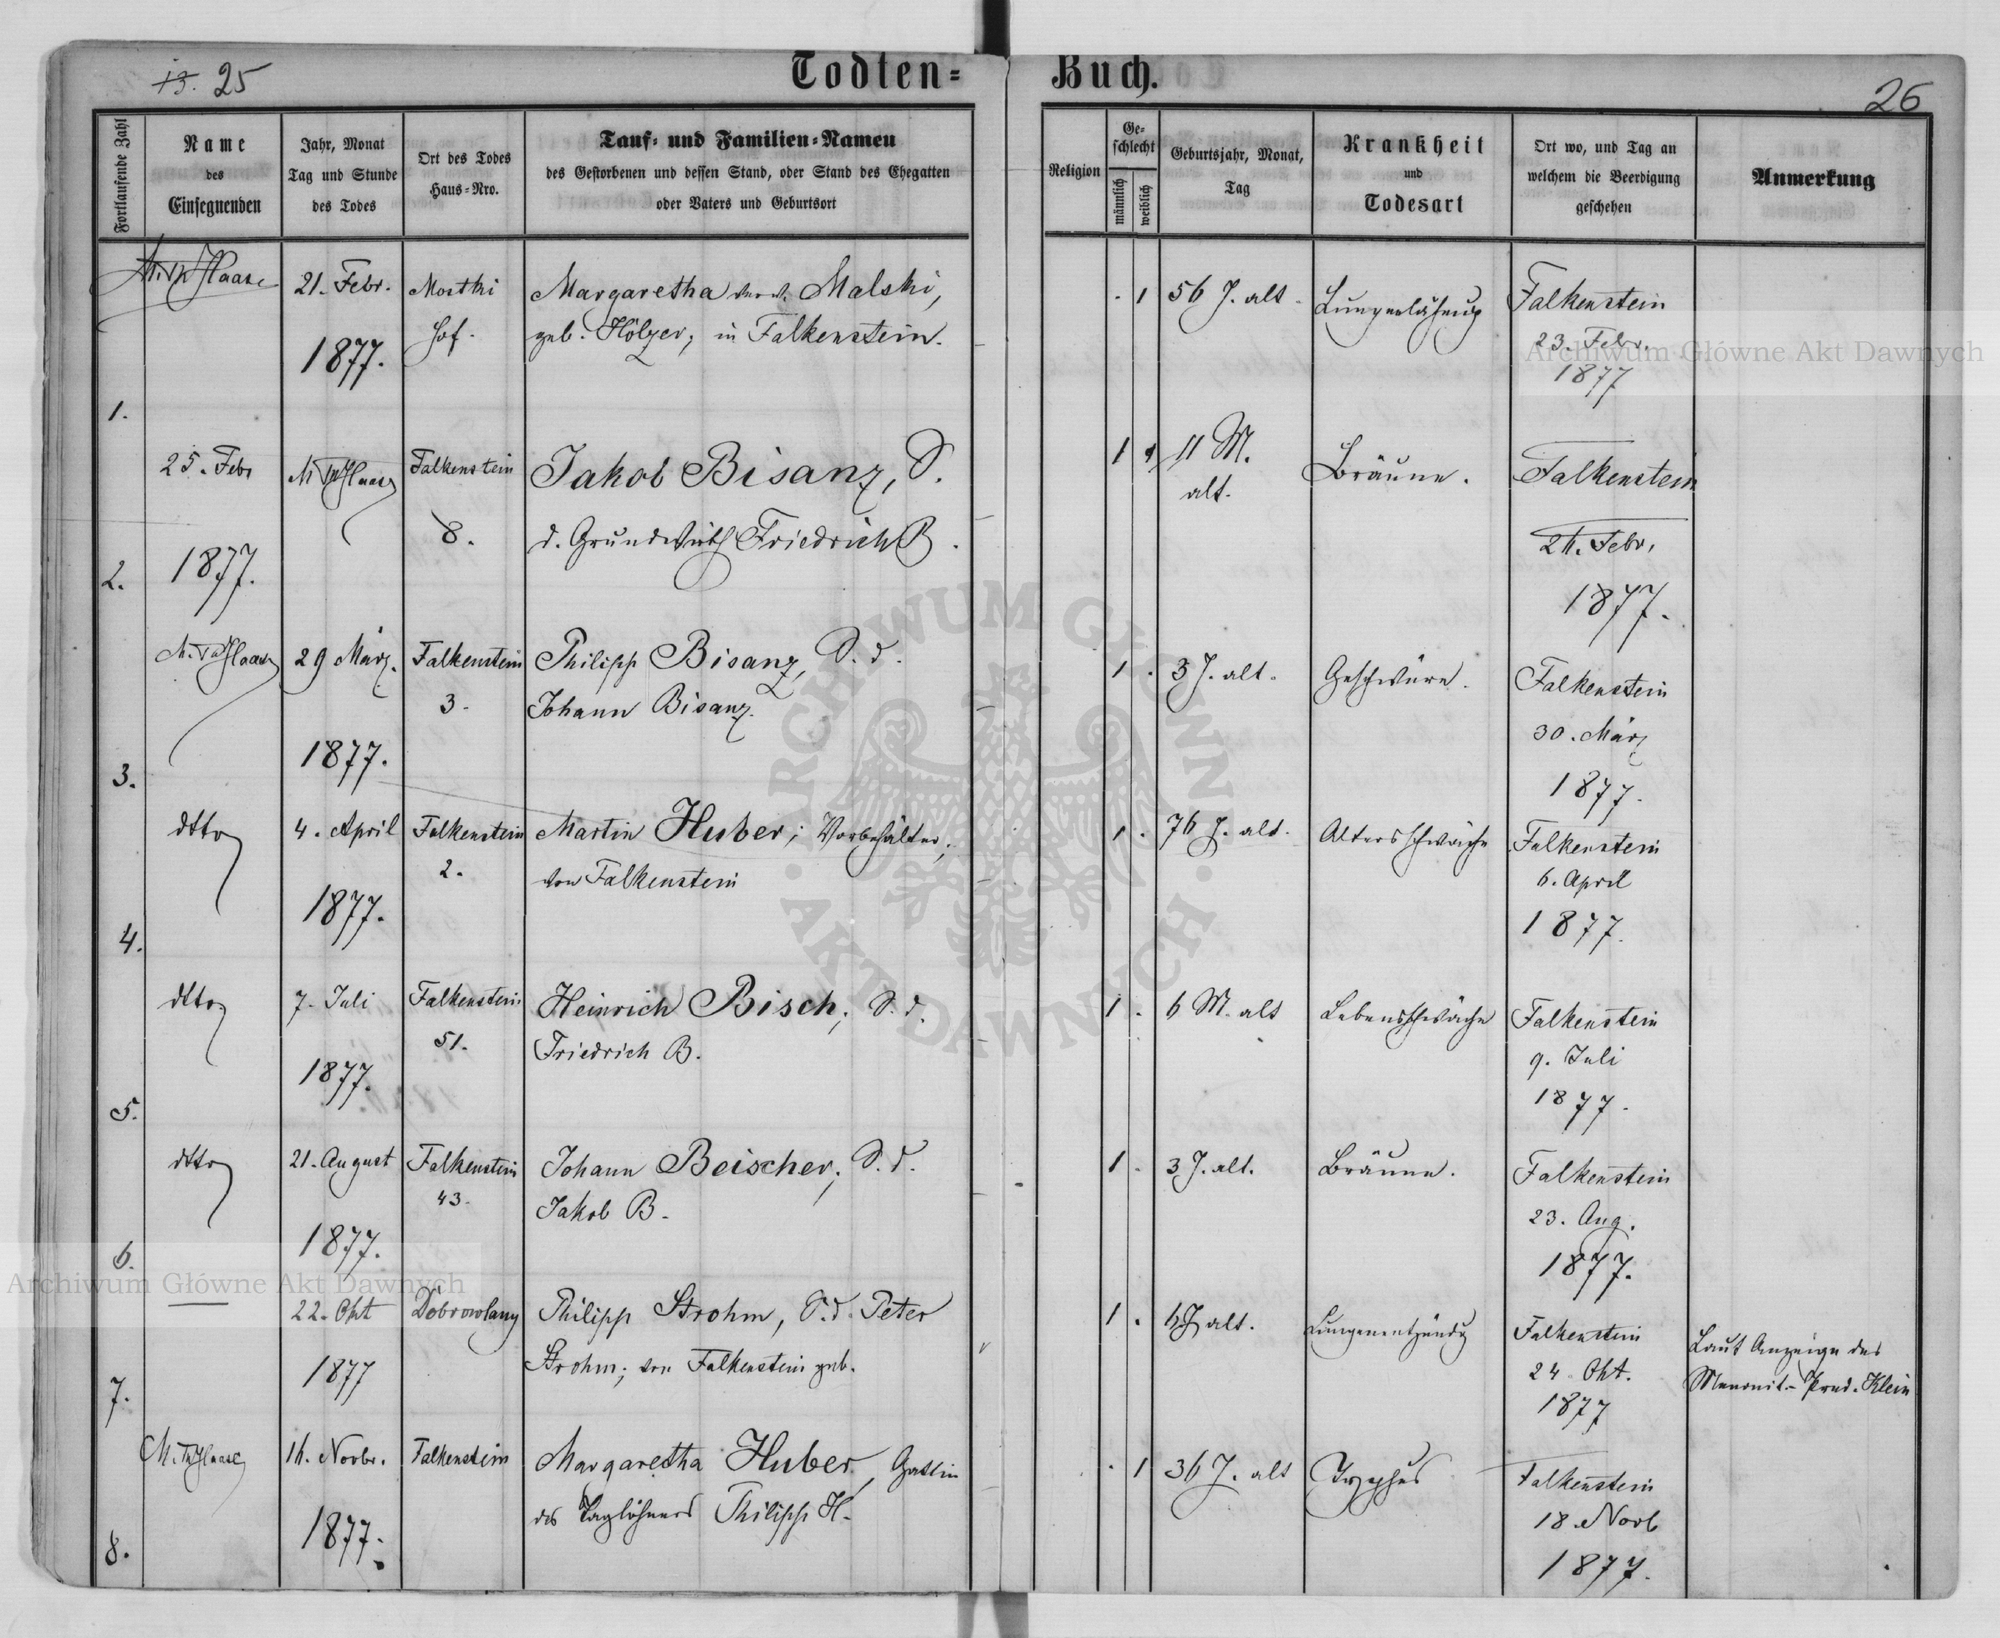 13. 25
Todten=
Buch.
26
Fortlaufende Zahl
Name
des
Einsegnenden
Jahr, Monat
Tag und Stunde
des Todes
Ort des Todes
Haus=Nro.
Tauf= und Familien=Namen
des Gestorbenen und dessen Stand, oder Stand des Ehegatten
oder Vaters und Geburtsort
Religion
Ge=
schlecht
männlich
weiblich
Geburtsjahr, Monat,
Tag
Krankheit
und
Todesart
Ort wo, und Tag an
welchem die Beerdigung
geschehen
Anmerkung
1.
Haase
21. Febr.
1877.
Mostki
Hof.
Margaretha verw. Malski,
geb. Hölzer, in Falkenstein.
. 1
56 J. alt
Lungenlähmung
Falkenstein
23. Febr.
1877
2.
25. Febr
1877.
Haase
Falkenstein
8.
Jakob Bisanz, S.
d. Grundwirth Friedrich B.
1
11 M.
alt.
Bräune.
Falkenstein
Febr.
1877.
3.
Haase
29 März.
1877.
Falkenstein
3.
Philipp Bisanz, S. d.
Johann Bisanz.
1 .
3 J. alt.
Geschwüre.
Falkenstein
30. März
1877.
4.
dtto
4. April
1877.
Falkenstein
2.
Martin Huber; Vorbehälter,
von Falkenstein
1 .
76 J. alt.
Altersschwäche
Falkenstein
6. April
1877.
5.
dtto
7. Juli
1877.
Falkenstein
51.
Heinrich Bisch, S. d.
Friedrich B.
1 .
6 M. alt
Lebensschwäche
Falkenstein
9. Juli
1877.
6.
dtto
21. August
1877.
Falkenstein
43.
Johann Beischer, S. d.
Jakob B.
1 .
3 J. alt.
Bräune.
Falkenstein
23. Aug.
1877.
7.
—
22. Okt
1877
Dobrowlany
Philipp Strohm, S. d. Peter
Strohm; von Falkenstein geb.
1 .
6 J alt.
Lungenentzündg
Falkenstein
24. Okt.
1877
Laut Anzeige des
Menonit.- Pred. Klein
8.
Haase
16. Novbr.
1877.
Falkenstein
Margaretha Huber, Gattin
des Taglöhners Philipp H.
. 1
36 J. alt
Typhus
Falkenstein
18 Novb
1877.
Archiwum Główne Akt Dawnych
ARCHIWUM GŁÓWNE · AKT DAWNYCH ·
Archiwum Główne Akt Dawnych